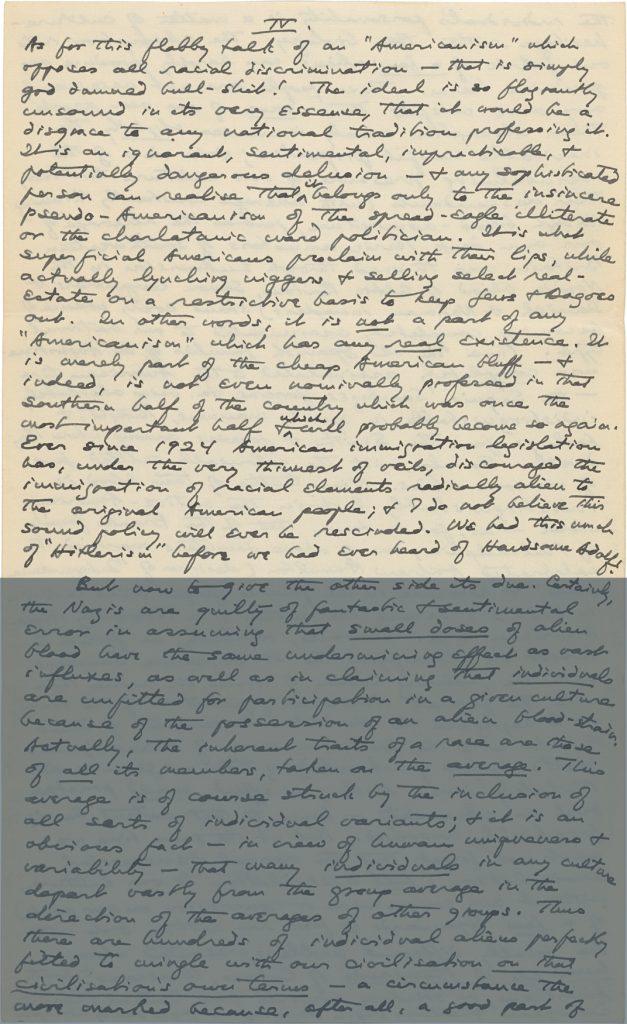 IV.
As for this flabby talk of an "Americanism" which
opposes all racial discrimination — that is simply
god damned bull-shit! The ideal is so flagrantly
unsound in its very essence, that it would be a
disgrace to any national tradition professing it.
It is an ignorant, sentimental, impracticable, &
potentially dangerous delusion — & any sophisticated
person can realise that it belongs only to the insincere
pseudo-Americanism of the spread-eagle illiterate
or the charlatanic ward politician. It is what
superficial Americans proclaim with their lips, while
actually lynching niggers & selling select real-
estate on a restrictive basis to keep Jews & Dagoes
out. In other words, it is not a part of any
"Americanism" which has any real existence. It
is merely part of the cheap American bluff — &
indeed, is not even nominally professed in that
Southern half of the country which was once the
most important half & which will probably become so again.
Ever since 1924 American immigration legislation
has, under the very thinnest of veils, discouraged the
immigration of racial elements radically alien to
the original American people; & I do not believe this
sound policy will ever be rescinded. We had this much
of "Hitlerism" before we had ever heard of Handsome Adolf!
But now to give the other side its due. Certainly,
the Nazis are guilty of fantastic & sentimental
error in assuming that small doses of alien
blood have the same undermining effect as vast
influxes, as well as in claiming that individuals
are unfitted for participation in a given culture
because of the possession of an alien blood-strain.
Actually, the inherent traits of a race are those
of all its members, taken on the average. This
average is of course struck by the inclusion of
all sorts of individual variants; & it is an
obvious fact — in view of human uniqueness &
variability — that many individuals in any culture
depart vastly from the group average in the
direction of the averages of other groups. Thus
there are hundreds of individual aliens perfectly
fitted to mingle with our civilisation on that
civilisation's own terms — a circumstance the
more marked because, after all, a good part of